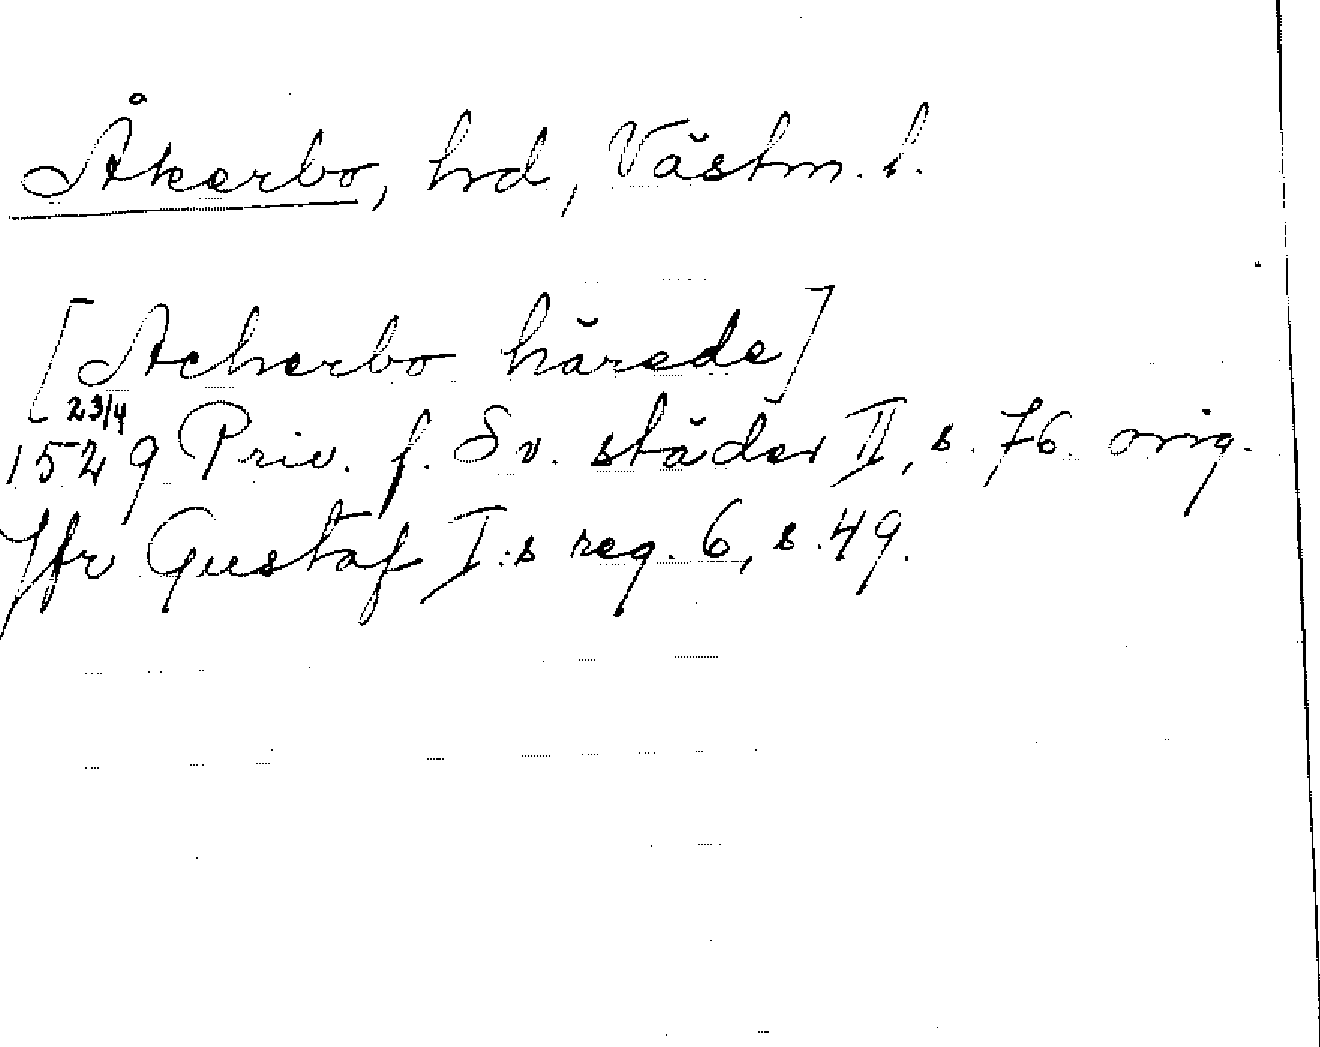 Åkerbo, hrd, Västm. l.
[Acherbo härede]
23/4
1529 Priv. f. Sv. städer II, s. 76. orig.
Jfr Gustaf I:s reg. 6, s. 49.